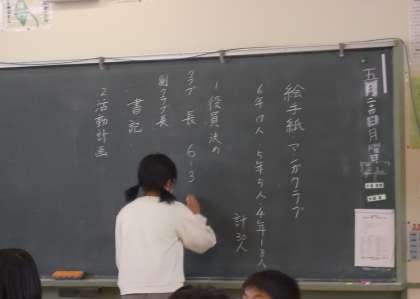 五月 日 月曜
絵手紙 マンガクラブ
6年17人 5年5人 4年18人
計30人
1 役員決め
クラブ 長 6-3
副クラブ長
書記
2 活動計画